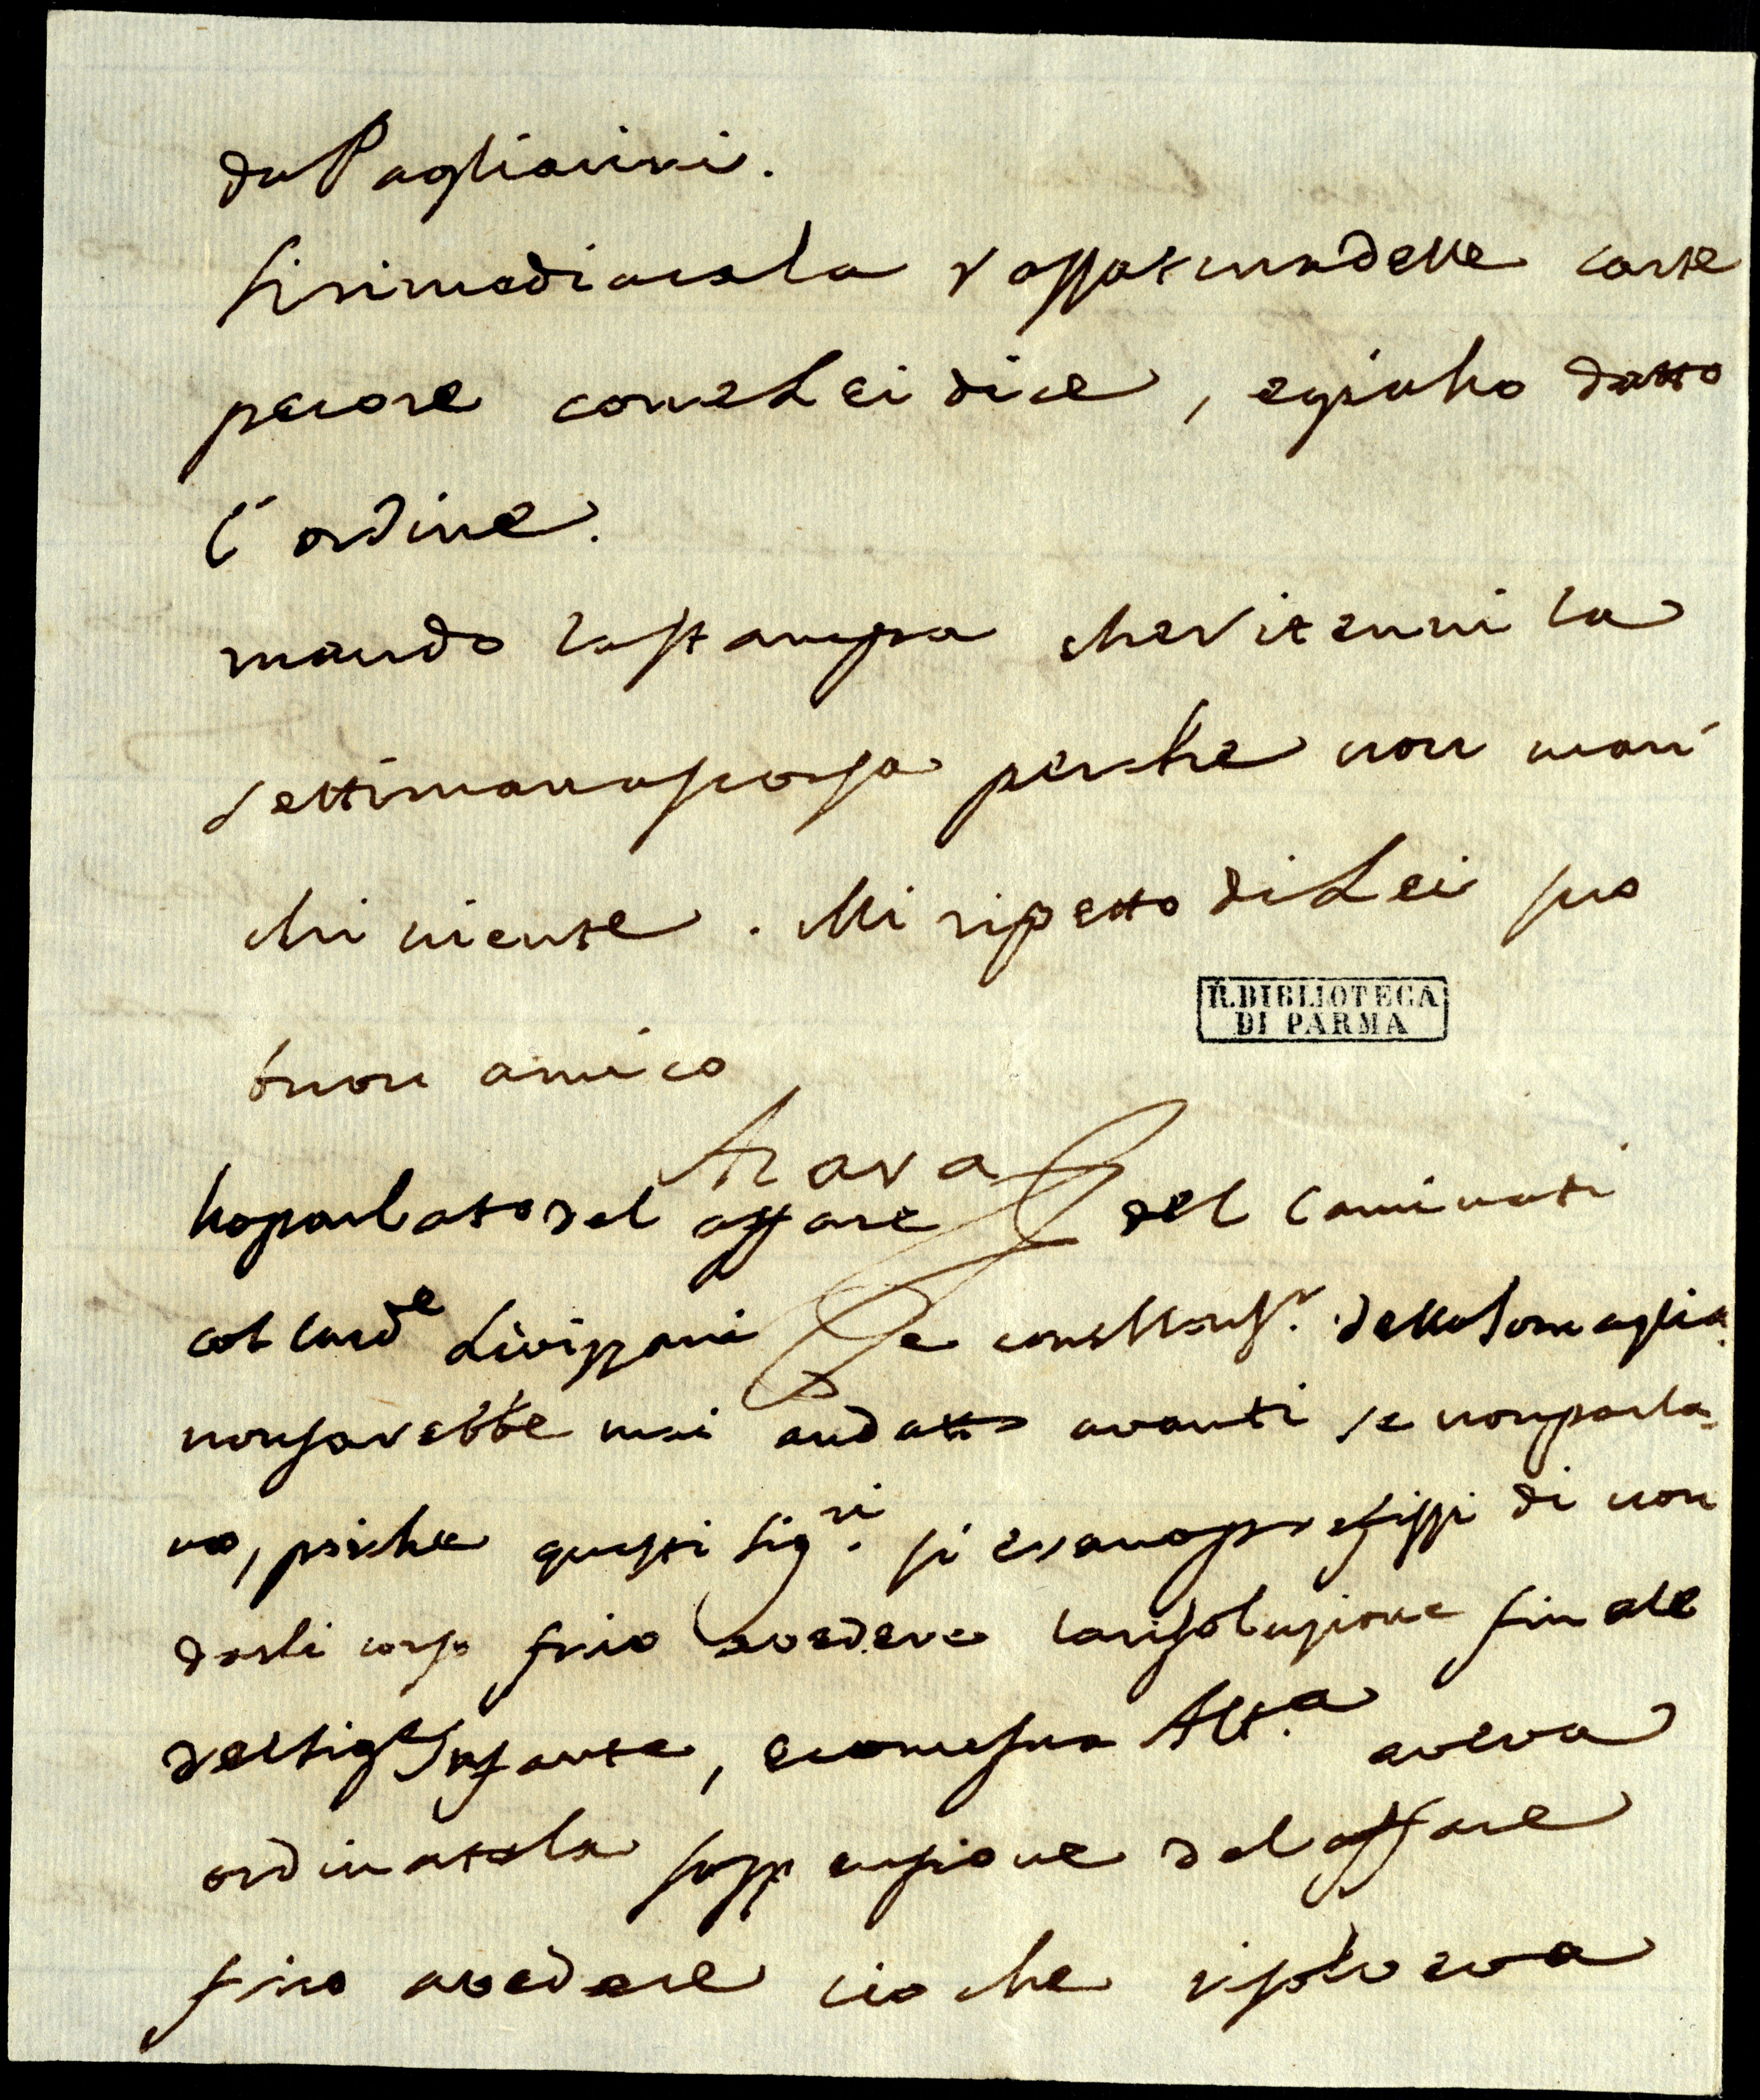 da Pagliarini.
si rimediara la raspatura delle carte
pecore come Lei dice, e gia ho datto
l'ordine.
mando la stampa che vitenni la
settimana scorsa perche non man-
chi niente. Mi ripetto di Lei suo
R.BIBLIOTECA
DI PARMA
buon amico
Azara
ho parlato del affare del Caminati
col Card.e Livizzani e con Mons.r della Somaglia.
non sarebbe mai andatto avanti se non parla-
vo, poiche questi Sig.ri si erano prefissi di non
darli corso fino avedere la risoluzione finale
del Sig.e Infante, e come sua Alt.a aveva
ordinata la sospensione del affare
fino avedere cio che risolveva